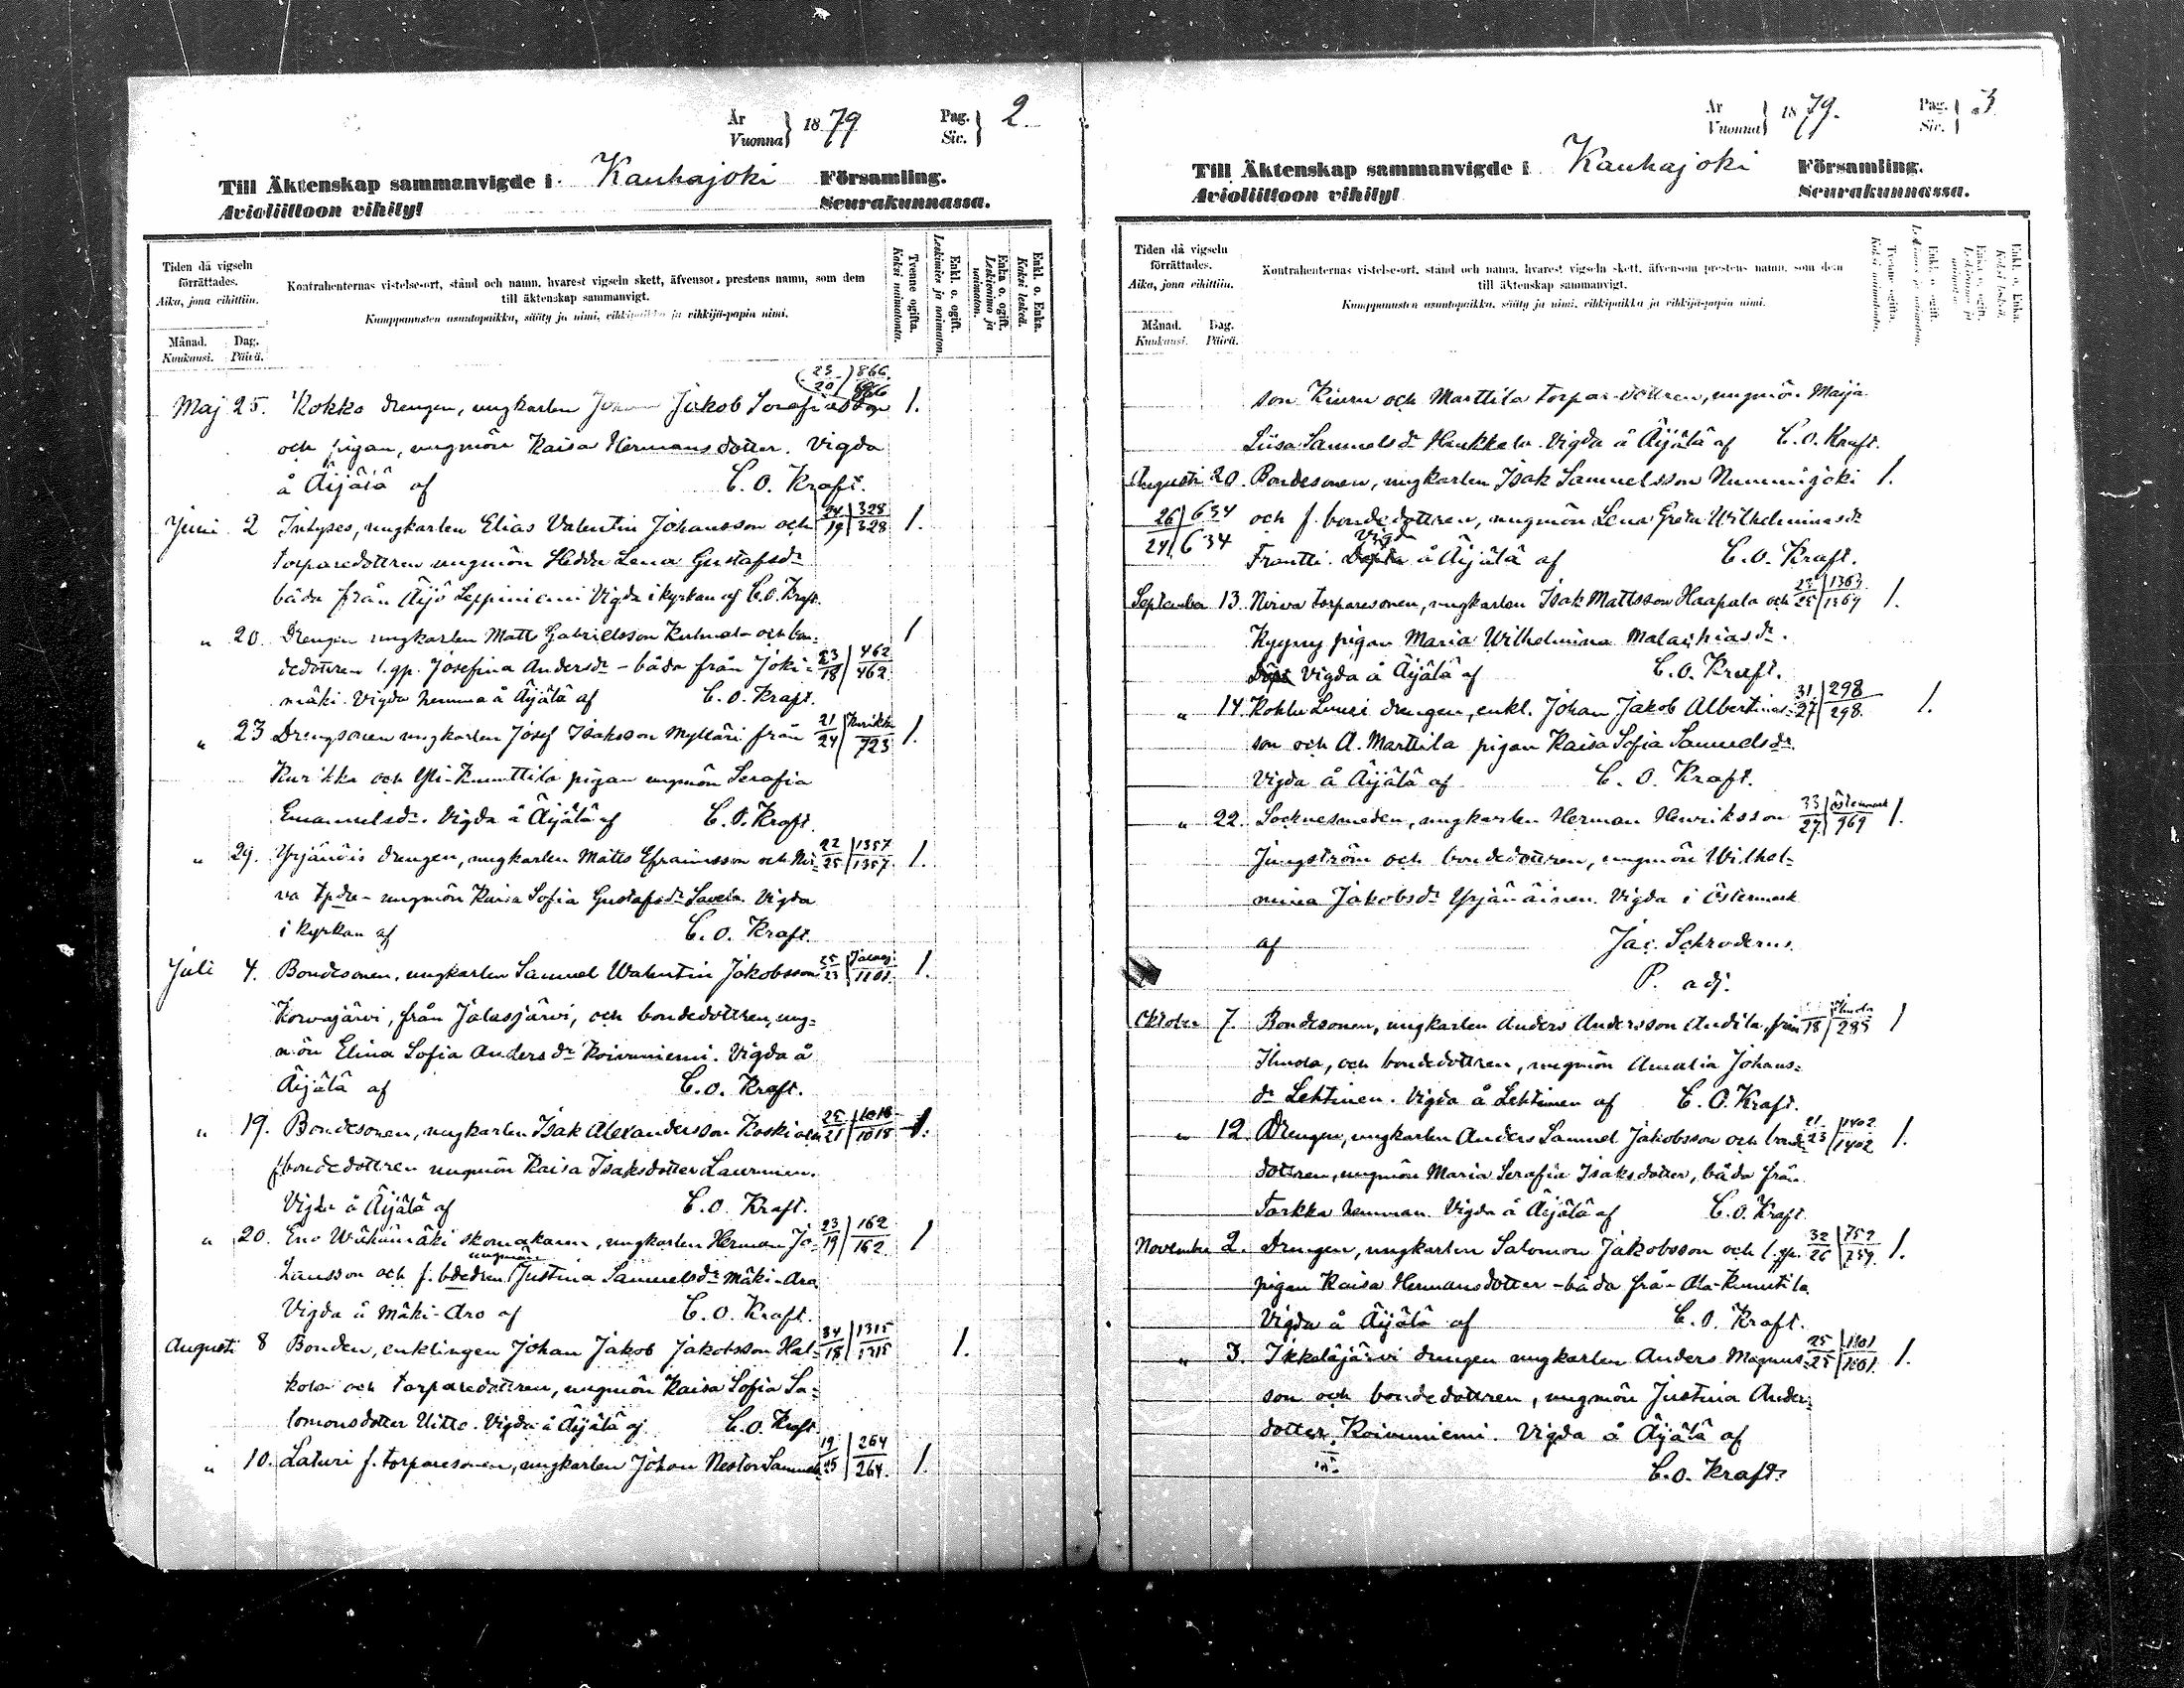 År
Vuonna } 1879
Pag.
Siv. } 2.
Till Äktenskap sammanvigde i Kauhajoki Församling.
Avioliittoon vihityt Seurakunnassa.
Tiden då vigseln förrättades.
Aika, jona vihittiin.
Månad. Dag.
Kuukausi. Päivä.
Kontrahenternas vistelse-ort, stånd och namn, hvarest vigseln skett, äfvensom prestens namn, som dem
till äktenskap sammanvigt.
Kumppanusten asuntopaikka, sääty ja nimi, vihkipaikka ja vihkijä-papin nimi.
Tvenne ogifta.
Kaksi naimatonta.
Enkl. o. ogift.
Leskimies ja naimaton.
Enka o. ogift.
Leskivaimo ja naimaton.
Enkl. o. Enka.
Kaksi leskeä.
23/20 866/866
Maj 25. Kokko drengen, ungkarlen Jakob Serafiasson 1.
och pigan, ungmön Kaisa Hermansdotter. Vigda
å Äijälä af C. O. Kraft.
Juni 2 Inhyses, ungkarlen Elias Valentin Johansson och 24/19 328/328 1.
torparedottren ungmön Hedda Lena Gustafsdr
båda från Äijö Leppiniemi Vigda i kyrkan af C. O. Kraft.
" 20. Drengen ungkarlen Matt Gabrielsson Kulmala och bon- 1
dedottren l. gp. Josefina Andersdr - båda från Joki- 23/18 462/462
mäki. Vigda hemma å Äijälä af C. O. Kraft.
" 23 Drengsonen ungkarlen Josef Isaksson Mylläri från 21/24 Kurikka/723 1.
Kurikka och Yli-Knuuttila pigan ungmön Serafia
Emanuelsdr. Vigda å Äijälä af C. O. Kraft
" 29. Yrjänäis drengen, ungkarlen Matts Efraimsson och Nir- 22/25 1357/1357 1.
va tpdr - ungmön Kaisa Sofia Gustafsdr Savela. Vigda
i kyrkan af C. O. Kraft.
Juli 4. Bondesonen, ungkarlen Samuel Walentin Jakobsson 25/23 Jalasj./1101 1.
Korvajärvi, från Jalasjärvi, och bondedottren, ung-
mön Elina Sofia Andersdr Koivuniemi. Vigda å
Äijälä af C. O. Kraft.
" 19. Bondesonen, ungkarlen Isak Alexandersson Koski och 25/21 1018/1018 1.
f. bondedottren ungmön Kaisa Isaksdotter Laurinen.
Vigda å Äijälä af C. O. Kraft.
" 20. Ens Wähämäki skomakaren, ungkarlen Herman Jo- 23/19 162/162 1
hansson och f. bdedren ungmön Justina Samuelsdr Mäki-Aro
Vigda å Mäki-Aro af C. O. Kraft.
Augusti 8 Bonden, enklingen Johan Jakob Jakobsson Hal- 34/18 1315/1315 1.
kola och torparedottren, ungmön Kaisa Sofia Sa-
lomonsdotter Uitto. Vigda å Äijälä af C. O. Kraft
" 10. Laturi f. torparesonen, ungkarlen Johan Nestor Samuels- 19/25 264/264. 1.
År
Vuonna } 1879.
Pag.
Siv. } 3
Till Äktenskap sammanvigde i Kauhajoki Församling.
Avioliittoon vihityt Seurakunnassa.
Tiden då vigseln förrättades.
Aika, jona vihittiin.
Månad. Dag.
Kuukausi. Päivä.
Kontrahenternas vistelse-ort, stånd och namn, hvarest vigseln skett, äfvensom prestens namn, som dem
till äktenskap sammanvigt.
Kumppanusten asuntopaikka, sääty ja nimi, vihkipaikka ja vihkijä-papin nimi.
son Kiuru och Marttila torpar-dottren, ungmön Maija
Liisa Samuelsdr Haukkala. Vigda å Äijälä af C. O. Kraft.
Augusti 20. Bondesonen, ungkarlen Isak Samuelsson Nummijoki 1.
26/24 634/634 och f. bondedottren, ungmön Lena Greta Wilhelminasdr
Frantti. Vigda å Äijälä af C. O. Kraft.
September 13. Nirva torparesonen, ungkarlen Isak Mattsson Haapala och 23/25 1363/1369 1.
Kyyny pigan Maria Wilhelmina Malachiasdr.
Vigda å Äijälä af C. O. Kraft.
" 14. Luusi drengen, enkl. Johan Jakob Albertinas- 31/27 298/298. 1.
son och A. Marttila pigan Kaisa Sofia Samuelsdr.
Vigda å Äijälä af C. O. Kraft.
" 22. Socknesmeden, ungkarlen Herman Henriksson 33/27 Östermark/969 1.
Jungström och bondedottren, ungmön Wilhel-
mina Jakobsdr Yrjänäinen. Vigda i Östermark
af Jac. Schroderus.
P. adj.
Oktober 7. Bondesonen, ungkarlen Anders Andersson Andila, från 18 Ilmola/285 1
Ilmola, och bondedottren, ungmön Amalia Johans-
dr Lehtinen. Vigda å Lehtinen af C. O. Kraft.
" 12 Drengen, ungkarlen Anders Samuel Jakobsson och bonde- 21/23 1402/1402 1.
dottren, ungmön Maria Serafia Isaksdotter, båda från
Tarkka hemman. Vigda å Äijälä af C. O. Kraft
November 2. Drengen, ungkarlen Salomon Jakobsson och l. gp. 32/26 759/759. 1.
pigan Kaisa Hermansdotter - båda från Ala-Knuutila
Vigda å Äijälä af C. O. Kraft.
" 3. Ikkeläjärvi drengen ungkarlen Anders Magnus- 25/25 1101/1101. 1.
son och bondedottren, ungmön Justina Anders-
dotter Koivuniemi. Vigda å Äijälä af
C. O. Kraft.